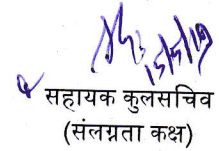 15/5/19
सहायक कुलसचिव
(संलग्नता कक्ष)